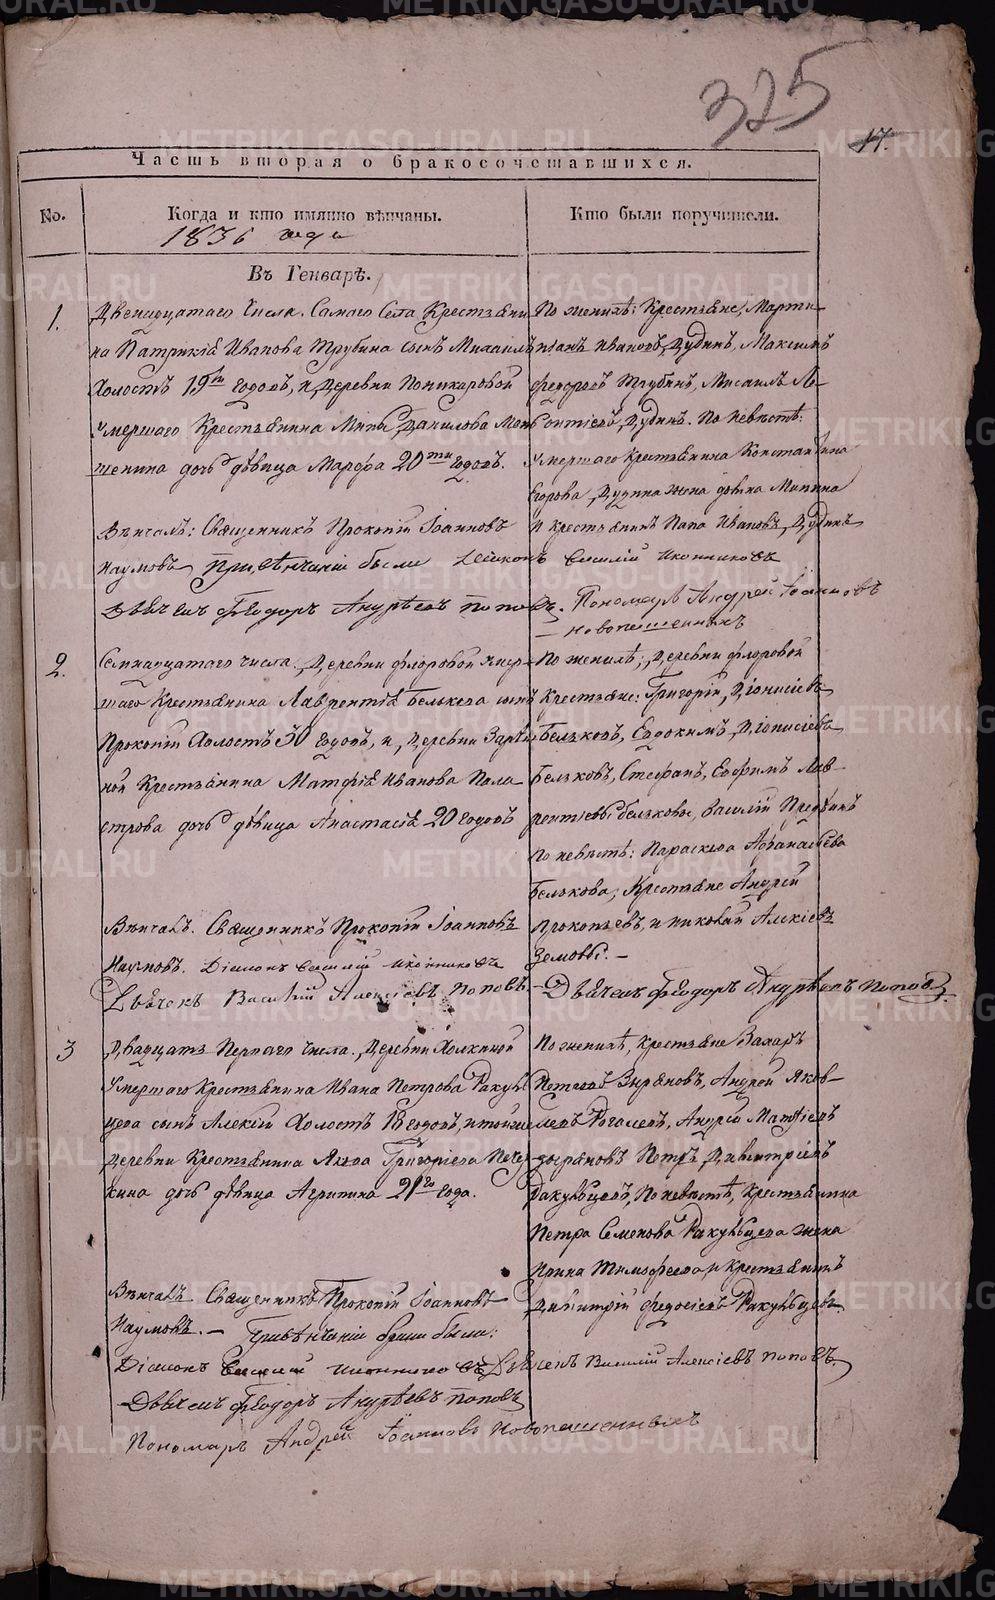 325
17.
Часть вторая о бракосочетавшихся.
No.
Когда и кто имянно вѣнчаны.
Кто были поручители.
1836 года
Въ Генварѣ.
1.
Двенадцатаго Числа. Самаго Села Крестьяни
на Патрикiя Иванова Трубина сынъ Михаилъ
Холостъ 19ти годовъ, и Деревни Поникаровой
Умершаго Крестьянина Данилова Мень
шенина дочь дѣвица Марфа 20ти годовъ.
Вѣнчалъ: Священникъ Прокопiй Iоанновъ
Наумовъ при вѣнчанiи были Дiаконъ Василiй Иконниковъ
Дьячекъ Ѳеодоръ Андрѣевъ Поповъ. Пономарь Андрей Iоанновъ
Новопашенныхъ
По женихѣ: Крестьяне, Марти
нiанъ Ивановъ Дудинъ, Максимъ
Федоровъ Трубинъ, Михаилъ Ле-
онтiевъ Дудинъ. По невѣстѣ:
Умершаго Крестьянина Константина
Егорова Дудина жена
и крестьянинъ Ивановъ Дудинъ
2.
Семнадцатаго числа. Деревни Флоровой умер-
шаго Крестьянина Лаврентiя Белькова сынъ
Прокопiй Холостъ 30 годовъ, и Деревни
ной Крестьянина Матфiя Иванова Пала
строва дочь дѣвица Анастасiя 20 годовъ
Вѣнчалъ. Священникъ Прокопiй Iоанновъ
Наумовъ. Дiаконъ Василiй Иконниковъ
Дьячекъ Василiй Алексiевъ Поповъ.
По женихѣ; Деревни Флоровой
Крестьяне: Григорiй Дiонисiевъ
Бельковъ, Евдокимъ Дiонисiевъ
Бельковъ, Стефанъ, Ефимъ Лав-
рентiевы Бельковы, Василiй
По невѣстѣ: Параскева Афанасьева
Белькова, Крестьяне Андрей
Прокопьевъ, и Николай Алексiевъ
Земовы. -
Дьячекъ Ѳеодоръ Андрѣевъ Поповъ.
3
Двадцать Перваго Числа. Деревни Холкиной
Умершаго Крестьянина Ивана Петрова Ракуль
цева сынъ Алексiй Холостъ 18 годовъ, и тойже
Деревни Крестьянина Якова Григорiева Пече
кина дочь дѣвица Агрипина 21го года.
Вѣнчалъ Священникъ Прокопiй Iоанновъ
Наумовъ. - При вѣнчанiи были:
Дiаконъ Василiй Иконниковъ Дьячекъ Василiй Алексiевъ Поповъ
Дьячекъ Ѳеодоръ Андрѣевъ Поповъ
Пономарь Андрей Iоанновъ Новопашенныхъ
По женихѣ, крестьяне Захаръ
Зыряновъ, Андрей Яков-
левъ Рогалевъ, Андрей Матфiевъ
Зыряновъ Петръ Димитрiевъ
Ракульцевъ, По невѣстѣ, Крестьянина
Петра Семенова Ракульцева жена
Ирина Тимофеева, и Крестьянинъ
Димитрiй Федосiевъ Ракульцевъ